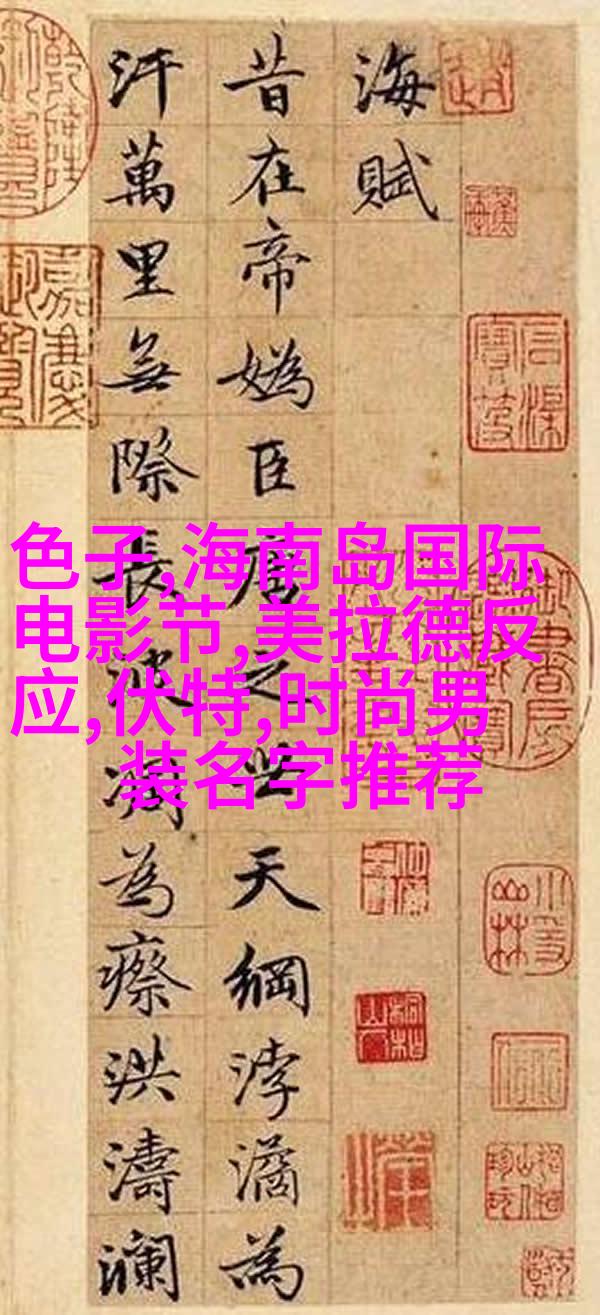 海賦
昔在帝媯臣唐之世天綱浡潏為
汗萬里無際長波凋為瘵洪濤瀾
色子,海南岛国际
电影节,美拉德反
应,伏特,时尚男
装名字推荐